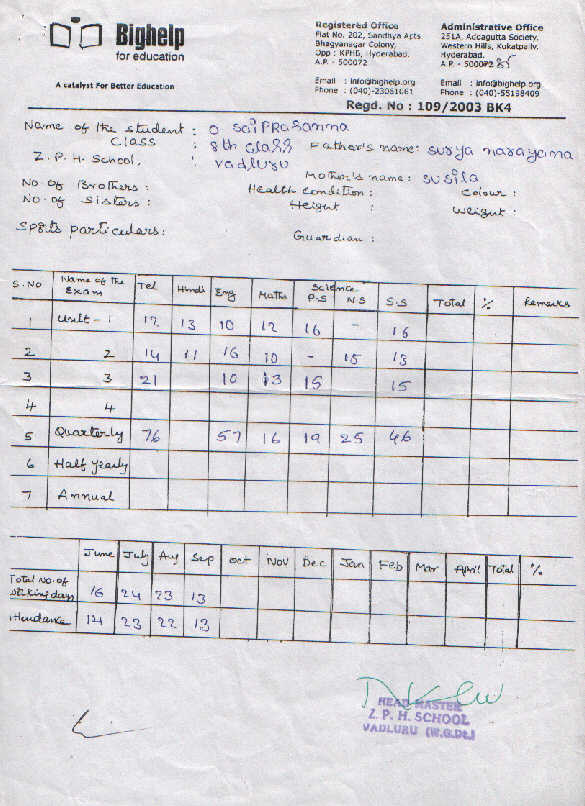 Bighelp
for education
A catalyst For Better Education
Registered Office
Flat No. 202, Sandhya Apts
Bhagyanagar Colony,
Opp : KPHB, Hyderabad.
A.P. - 500072
Email : info@bighelp.org
Phone : (040)-23061061
Administrative Office
251A, Addagutta Society,
Western Hills, Kukatpally,
Hyderabad.
A.P. - 500072 85
Email : info@bighelp.org
Phone : (040)-55139409
Regd. No : 109/2003 BK4
Name of the student : O Sai Prasanna
Class : 8th class Father's name: Surya narayana
Z. P. H. School, : Vadluru
Mother's name: Susila
No. of Brothers : Health condition : Colour :
No. of Sisters : Height : Weight :
Sports particulars:
Guardian :
S.No Name of the Exam Tel Hindi Eng Maths Science P.S N.S S.S Total % Remarks
1 Unit - 1 12 13 10 12 16 - 16
2 2 14 11 16 10 - 15 13
3 3 21 10 13 15 15
4 4
5 Quarterly 76 57 16 19 25 46
6 Half Yearly
7 Annual
June July Aug Sep Oct Nov Dec Jan Feb Mar April Total %
Total No. of 16 24 23 13
Attendance 14 23 22 13
HEAD MASTER
Z. P. H. SCHOOL
VADLURU (W.G.Dt.)